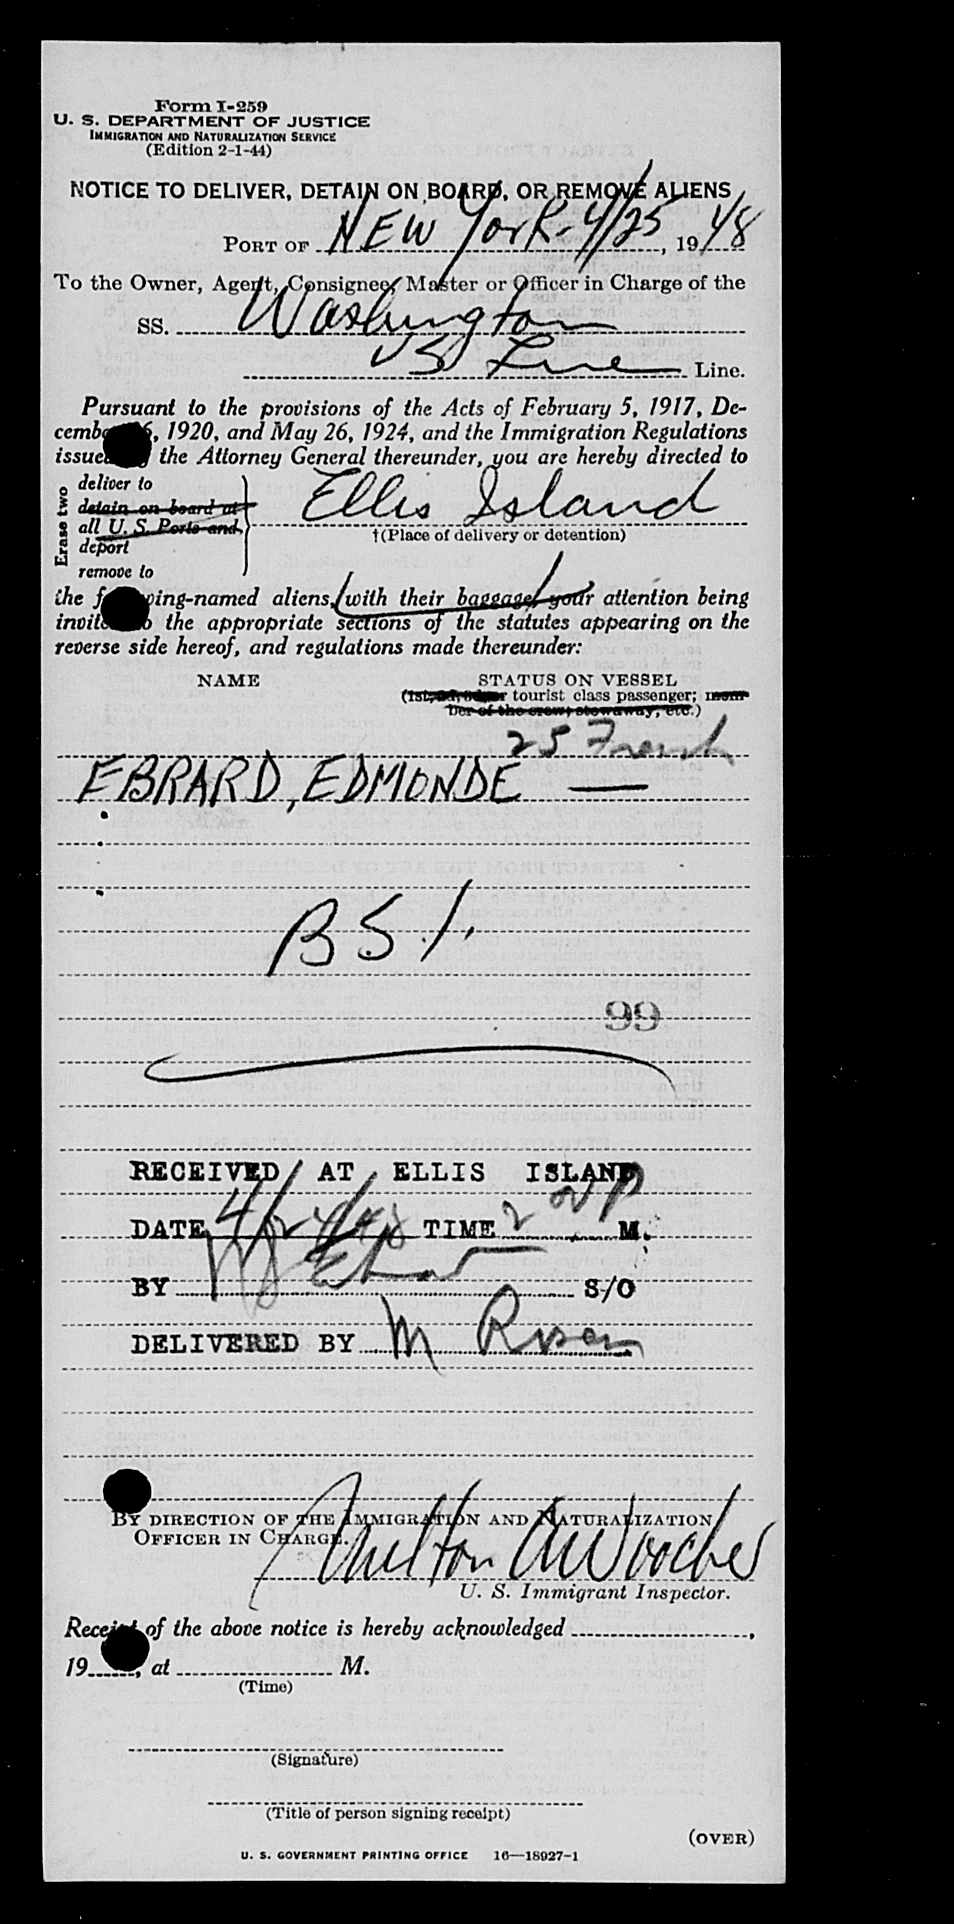 Form I-259
U. S. DEPARTMENT OF JUSTICE
IMMIGRATION AND NATURALIZATION SERVICE
(Edition 2-1-44)
NOTICE TO DELIVER, DETAIN ON BOARD, OR REMOVE ALIENS
PORT OF NEW York - 4/25, 1948
To the Owner, Agent, Consignee, Master or Officer in Charge of the
SS. Washington
US Line Line.
Pursuant to the provisions of the Acts of February 5, 1917, De-
6, 1920, and May 26, 1924, and the Immigration Regulations
the Attorney General thereunder, you are hereby directed to
Erase two
deliver to
detain on board at
all U. S. Ports and
deport
remove to
Ellis Island
†(Place of delivery or detention)
the following-named aliens, with their baggage, your attention being
the appropriate sections of the statutes appearing on the
reverse side hereof, and regulations made thereunder:
NAME STATUS ON VESSEL
tourist class passenger; mem-
ber of the crew; stowaway, etc.)
25 French
EBRARD, EDMONDE —
BSI.
99
RECEIVED AT ELLIS ISLAND
DATE TIME 2 P M.
BY S/O
DELIVERED BY M Rosen
BY DIRECTION OF THE IMMIGRATION AND NATURALIZATION
OFFICER IN CHARGE.
Milton
U. S. Immigrant Inspector.
Receipt of the above notice is hereby acknowledged ,
19 , at M.
(Time)
(Signature)
(Title of person signing receipt)
(OVER)
U. S. GOVERNMENT PRINTING OFFICE 16—18927-1